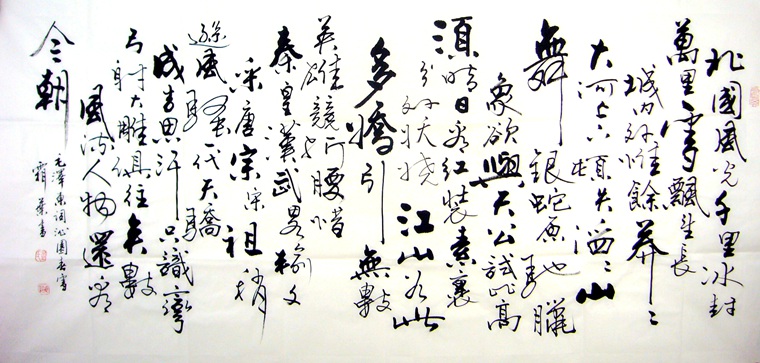 北國風光千里冰封
萬里雪飄望長
城内外惟餘莽〻
大河上下頓失滔〻山
舞銀蛇原馳蠟
象欲與天公試比高
須晴日看紅裝素裹
分外妖嬈江山如此
多嬌引無數
英雄競折腰惜
秦皇漢武畧輸文
采唐宗宋祖稍
遜風騷一代天驕
成吉思汗只識彎
弓射大雕俱往矣數
風流人物還看
今朝
毛澤東詞沁園春雪
霜葉書